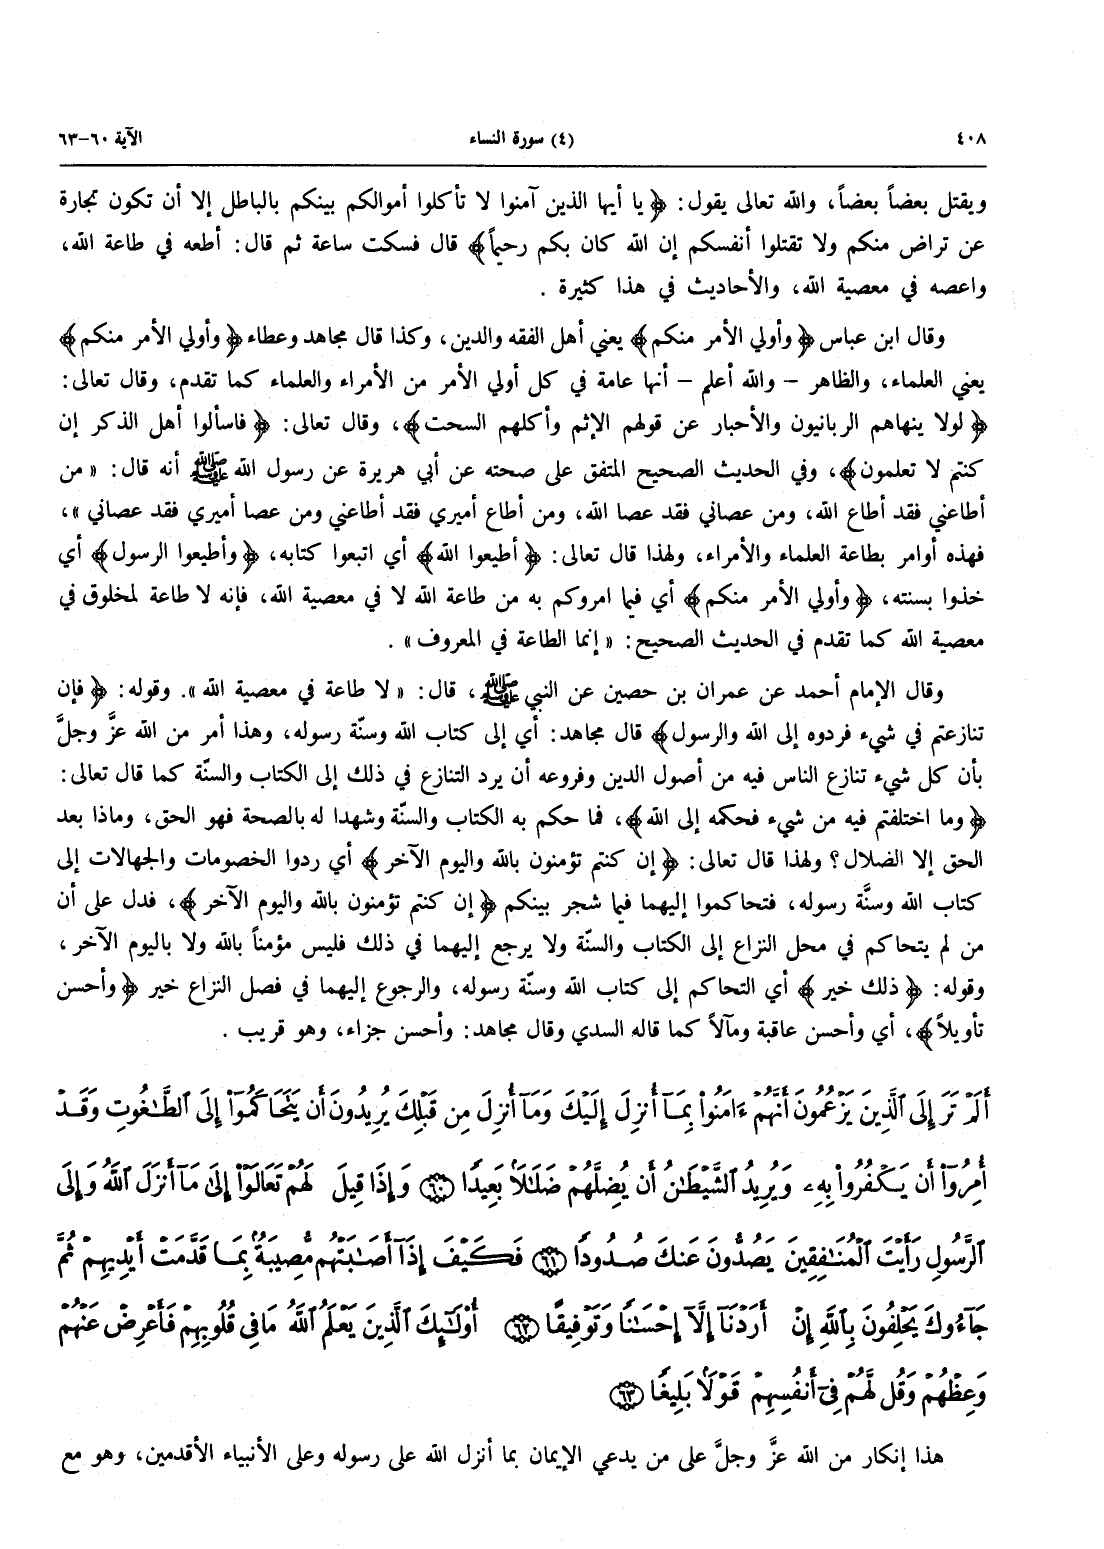 ٤٠٨ (٤) سورة النساء الآية ٦٠-٦٣
ويقتل بعضاً بعضاً، والله تعالى يقول: ﴿ يا أيها الذين آمنوا لا تأكلوا أموالكم بينكم بالباطل إلا أن تكون تجارة
عن تراض منكم ولا تقتلوا أنفسكم إن الله كان بكم رحيماً﴾ قال فسكت ساعة ثم قال: أطعه في طاعة الله،
واعصه في معصية الله، والأحاديث في هذا كثيرة .
وقال ابن عباس ﴿ وأولي الأمر منكم﴾ يعني أهل الفقه والدين، وكذا قال مجاهد وعطاء ﴿ وأولي الأمر منكم﴾
يعني العلماء، والظاهر – والله أعلم – أنها عامة في كل أولي الأمر من الأمراء والعلماء كما تقدم، وقال تعالى:
﴿ لولا ينهاهم الربانيون والأحبار عن قولهم الإثم وأكلهم السحت﴾، وقال تعالى: ﴿ فاسألوا أهل الذكر إن
كنتم لا تعلمون﴾، وفي الحديث الصحيح المتفق على صحته عن أبي هريرة عن رسول الله ﷺ أنه قال: « من
أطاعني فقد أطاع الله، ومن عصاني فقد عصا الله، ومن أطاع أميري فقد أطاعني ومن عصا أميري فقد عصاني »،
فهذه أوامر بطاعة العلماء والأمراء، ولهذا قال تعالى: ﴿ أطيعوا الله﴾ أي اتبعوا كتابه، ﴿ وأطيعوا الرسول﴾ أي
خذوا بسنته، ﴿ وأولي الأمر منكم﴾ أي فيما امروكم به من طاعة الله لا في معصية الله، فإنه لا طاعة لمخلوق في
معصية الله كما تقدم في الحديث الصحيح: « إنما الطاعة في المعروف » .
وقال الإمام أحمد عن عمران بن حصين عن النبي ﷺ، قال: « لا طاعة في معصية الله ». وقوله: ﴿ فإن
تنازعتم في شيء فردوه إلى الله والرسول﴾ قال مجاهد: أي إلى كتاب الله وسنّة رسوله، وهذا أمر من الله عزَّ وجلَّ
بأن كل شيء تنازع الناس فيه من أصول الدين وفروعه أن يرد التنازع في ذلك إلى الكتاب والسنّة كما قال تعالى:
﴿ وما اختلفتم فيه من شيء فحكمه إلى الله﴾، فما حكم به الكتاب والسنّة وشهدا له بالصحة فهو الحق، وماذا بعد
الحق إلا الضلال؟ ولهذا قال تعالى: ﴿ إن كنتم تؤمنون بالله واليوم الآخر ﴾ أي ردوا الخصومات والجهالات إلى
كتاب الله وسنَّة رسوله، فتحاكموا إليهما فيما شجر بينكم ﴿ إن كنتم تؤمنون بالله واليوم الآخر ﴾، فدل على أن
من لم يتحاكم في محل النزاع إلى الكتاب والسنّة ولا يرجع إليهما في ذلك فليس مؤمناً بالله ولا باليوم الآخر ،
وقوله: ﴿ ذلك خير ﴾ أي التحاكم إلى كتاب الله وسنّة رسوله، والرجوع إليهما في فصل النزاع خير ﴿ وأحسن
تأويلاً﴾، أي وأحسن عاقبة ومآلاً كما قاله السدي وقال مجاهد: وأحسن جزاء، وهو قريب .
أَلَمْ تَرَ إِلَى ٱلَّذِينَ يَزْعُمُونَ أَنَّهُمْ ءَامَنُوا۟ بِمَآ أُنزِلَ إِلَيْكَ وَمَآ أُنزِلَ مِن قَبْلِكَ يُرِيدُونَ أَن يَتَحَاكَمُوٓا۟ إِلَى ٱلطَّـٰغُوتِ وَقَدْ
أُمِرُوٓا۟ أَن يَكْفُرُوا۟ بِهِۦ وَيُرِيدُ ٱلشَّيْطَـٰنُ أَن يُضِلَّهُمْ ضَلَـٰلًۢا بَعِيدًا ﴿٦٠﴾ وَإِذَا قِيلَ لَهُمْ تَعَالَوْا۟ إِلَىٰ مَآ أَنزَلَ ٱللَّهُ وَإِلَى
ٱلرَّسُولِ رَأَيْتَ ٱلْمُنَـٰفِقِينَ يَصُدُّونَ عَنكَ صُدُودًا ﴿٦١﴾ فَكَيْفَ إِذَآ أَصَـٰبَتْهُم مُّصِيبَةٌۢ بِمَا قَدَّمَتْ أَيْدِيهِمْ ثُمَّ
جَآءُوكَ يَحْلِفُونَ بِٱللَّهِ إِنْ أَرَدْنَآ إِلَّآ إِحْسَـٰنًا وَتَوْفِيقًا ﴿٦٢﴾ أُو۟لَـٰٓئِكَ ٱلَّذِينَ يَعْلَمُ ٱللَّهُ مَا فِى قُلُوبِهِمْ فَأَعْرِضْ عَنْهُمْ
وَعِظْهُمْ وَقُل لَّهُمْ فِىٓ أَنفُسِهِمْ قَوْلًۢا بَلِيغًا ﴿٦٣﴾
هذا إنكار من الله عزَّ وجلَّ على من يدعي الإيمان بما أنزل الله على رسوله وعلى الأنبياء الأقدمين، وهو مع